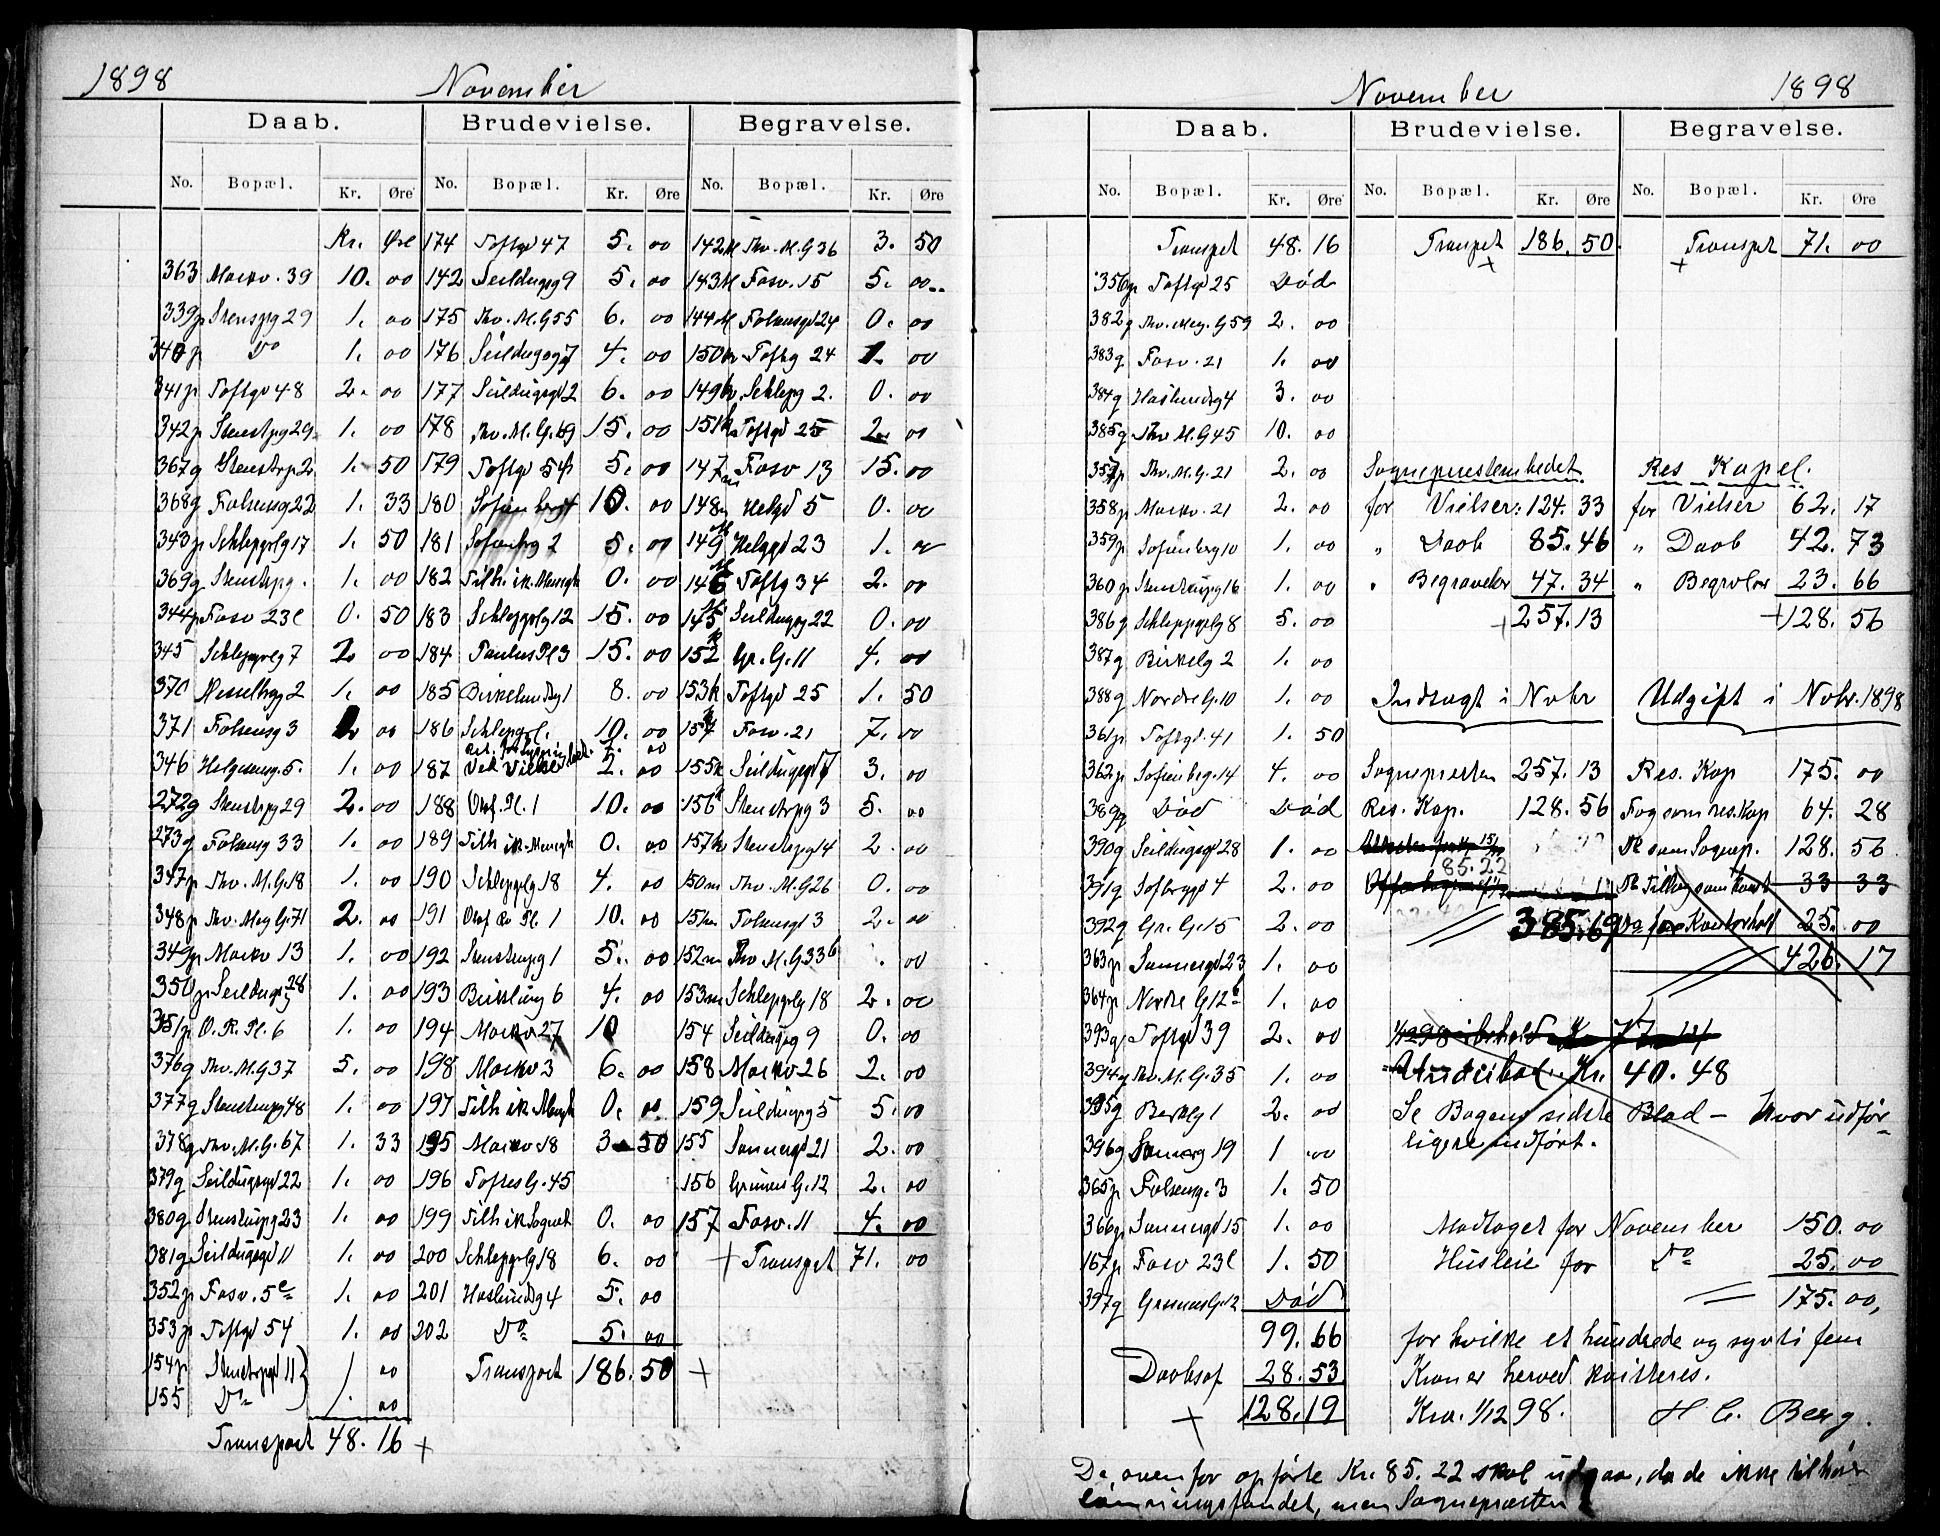 1898 November
Daab. Brudevielse. Begravelse.
No. Bopæl. Kr. Øre No. Bopæl. Kr. Øre No. Bopæl. Kr. Øre
Kr. Øre 174 Toftgd 47 5. 00 142 M Thv. M. G 36 3. 50
363 Markv. 39 10. 00 142 Seildugsg 9 5. 00 143 M Fosv. 15 5. 00
339 p Stenspg 29 1. 00 175 Thv. M. G 55 6. 00 144 M Folensgd 24 0. 00
340 p Do 1. 00 176 Seildugsg 7 4. 00 150 k Toftg 24 1. 00
341 p Toftgd 48 2. 00 177 Seildugsgd 2 6. 00 149 k Schlepg 2. 0. 00
342 p Stenstpg 29 1. 00 178 Thv. M. G. 69 15. 00 151 k Toftgd 25 2. 00
367 g Stenstrp 2 1. 50 179 Toftgd 54 5. 00 147 m Fosv 13 15. 00
368 g Folensg 22 1. 33 180 Sofienberg 10. 00 148 m Helgd 5 0. 00
343 p Schlepgrlg 17 1. 50 181 Sofienbrg 2 5. 00 149 M Helggd 23 1. 00
369 g Stenstrpg. 1. 00 182 Tilh. ik. Menigh 0. 00 146 M Toftg 34 2. 00
344 p Fosv 23 c 0. 50 183 Schlepgrlg 12 15. 00 145 M Seildugsg 22 0. 00
345 Schlepgrlg 7 2 00 184 Paulus Pl 3 15. 00 152 k Gr. G. 11 4. 00
370 Hesselbrgg 2 1. 00 185 Birkelundsg 1 8. 00 153 k Toftgd 25 1. 50
371 Folensg 3 00 186 Schlepgrl. 10. 00 154 k Fosv. 21 7. 00
346 Helgesensg. 5. 1. 00 187 Ved Vielse 2. 00 155 k Seildugsgd 7 3. 00
272 g Stenstpg 29 2. 00 188 Olaf. Pl. 1 10. 00 156 k Stenstrpg 3 5. 00
273 g Folensg 33 1. 00 189 Tilh ik. Menigh 0. 00 157 k Stenstrpg 14 2. 00
347 p Thv. M. G. 18 1. 00 190 Schlepgrlg 18 4. 00 150 m Thv. M. G 26 0. 00
348 p Thv. Mey G. 71 2. 00 191 Olaf Rs Pl. 1 10. 00 151 m Folensgd 3 2. 00
349 p Markv 13 1. 00 192 Stenstrupg 1 5. 00 152 m Thv M. G 33 b . 00
350 p Seildugsg 28 1. 00 193 Birklung 6 4. 00 153 m Schlepgrlg 18 2. 00
351 p O. R. Pl. 6 1. 00 194 Markv 27 10 154 Seildugsg 9 0. 00
376 g Thv. M. G 37 5. 00 198 Markv 3 6. 00 158 Markv 26 2. 00
377 g Stenstrupg 48 1. 00 197 Tilh ik. Menigh 0. 00 159 Seildugsg 5 5. 00
378 g Thv. M. G. 67 1. 33 195 Markv 18 3 50 155 Sannergd 21 2. 00
379 g Seildugsgd 22 1. 00 196 Toftes G. 45 156 Grüners G. 12 2. 00
380 g Stenstrupg 23 1. 00 199 Tilh ik Sognet 0. 00 157 Fosv. 11 4. 00
381 g Seildugsgd 11 1. 00 200 Schlepgrlg 18 6. 00 + Transpot 71. 00
352 p Fosv. 5 c 1. 00 201 Haslundsg 4 5. 00
353 p Toftgd 54 1. 00 202 Do 5. 00
154 p Stenstrpgd 11 1 00 Transport 186. 50 +
155 Do 1. 00
Transport 48. 16 +
November 1898
Daab. Brudevielse. Begravelse.
No. Bopæl. Kr. Øre No. Bopæl. Kr. Øre No. Bopæl. Kr. Øre
Transpot 48. 16 Transpot 186. 50. Transpot 71. 00
356 p Toftgd 25 Død + +
382 g Thv. Mey. G 59 2. 00
383 g Fosv. 21 1. 00
384 g Haslundsg 4 3. 00
385 g Thv M. G 45 10. 00
357 p Thv. M. G. 21 2. 00 Sogneprestembedet Res Kapel.
358 p Markv. 21 2. 00 for Vielser: 124. 33 for Vielser 62. 17
359 p Sofienberg 10 1. 00 " Daab 85. 46 " Daab 42. 73
360 p Stenstrupg 16 1. 00 " Begravelser 47. 34 " Begrvlser 23. 66
386 g Schlepgrlg 8 5. 00 257. 13 + 128. 56
387 g Birkelg 2 1. 00
388 g Nordre G. 10 1. 00 Indtægt i Novbr Udgift i Novbr. 1898
361 p Toftgd. 41 1. 50
362 p Sofienbrg. 14 4. 00 Sognepresten 257. 13 Res. Kap 175. 00
389 p Død Død Res. Kap. 128. 56 Fog som res. Kap 64. 28
390 g Seildugsgd 28 1. 00 Do som Sognep. 128. 56
391 g Sofbrggd 4 2. 00 85. 22 Do Tillæg som Konst 33 33
392 g Gr. G. 15 2. 00 385. 69 Do for Kontorhold 25. 00
363 p Sannergd 23 1. 00 426. 17
364 p Nordre G 12 b 1. 00
393 g Toftgd 39 2. 00
394 g Thv. M. G. 35 1. 00 Underbal. Kr. 40. 48
395 g Barkeg 1 2. 00 Se Bogens sidste Blad – hvor udfør-
396 g Sannerg 19 1 00 ligere indført.
365 p Folsensg. 3 1. 50
366 p Sannergd 15 1. 00 Modtaget for November 150. 00
167 p Fosv 23 c 1. 50 Husleie for Do 25. 00
397 g Grüners G. 12 Død 175. 00,
99. 66 for hvilke et hundrede og sytti fem
Daabsaf 28. 53 Kroner herved kvitteres.
+ 128. 19 Kra. 1/12 98. H C. Berg.
De ovenfor opførte Kr. 85. 22 skal udgaa, da de ikke tilhører
lønningsfondet, men Sognepræsten